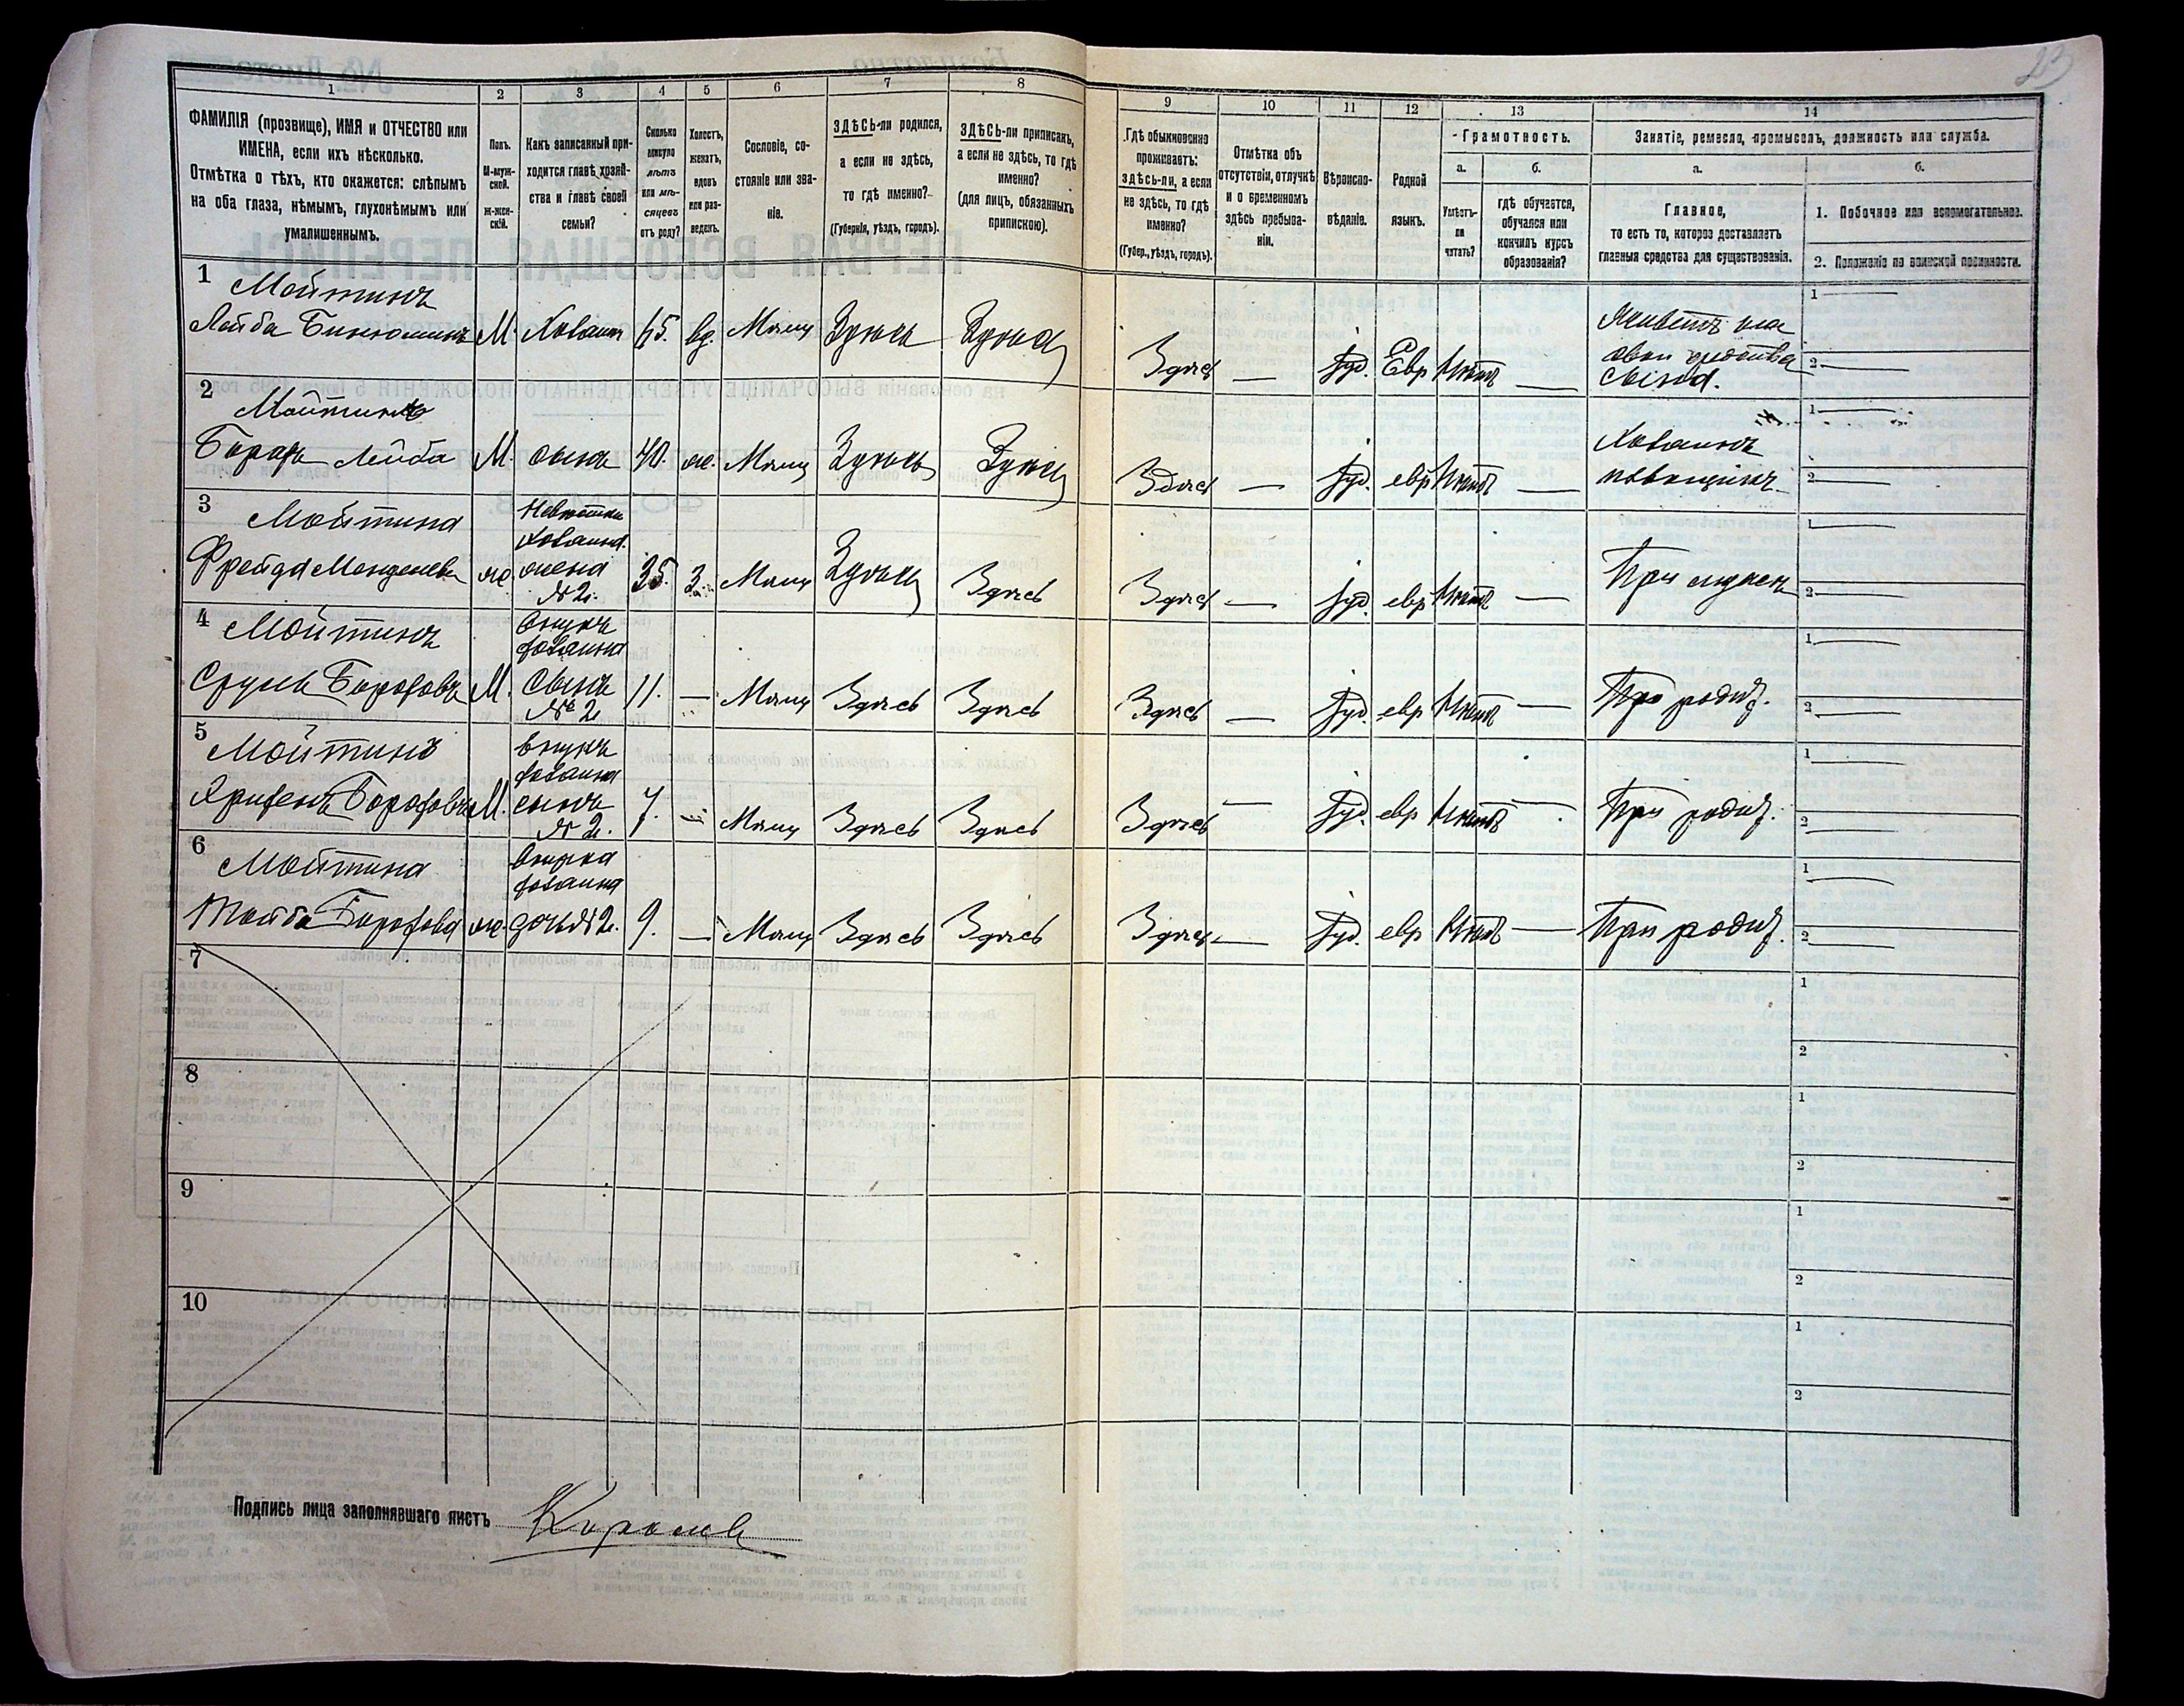 23
1 2 3 4 5 6 7 8 9 10 11 12 13 14
ФАМИЛІЯ (прозвище), ИМЯ и ОТЧЕСТВО или
ИМЕНА, если ихъ нѣсколько.
Отмѣтка о тѣхъ, кто окажется: слѣпымъ
на оба глаза, нѣмымъ, глухонѣмымъ или
умалишеннымъ.
Полъ.
М-муж-
ской.
ж-жен-
скій.
Какъ записанный при-
ходится главѣ хозяй-
ства и главѣ своей
семьи?
Сколько
минуло
лѣтъ
или мѣ-
сяцевъ
отъ роду?
Холостъ,
женатъ,
вдовъ
или раз-
веденъ.
Сословіе, со-
стояніе или зва-
ніе.
ЗДѢСЬ-ли родился,
а если не здѣсь,
то гдѣ именно?
(Губернія, уѣздъ, городъ).
ЗДѢСЬ-ли приписанъ,
а если не здѣсь, то гдѣ
именно?
(для лицъ, обязанныхъ
припискою).
Гдѣ обыкновенно
проживаетъ:
здѣсь-ли, а если
не здѣсь, то гдѣ
именно?
(Губер., уѣздъ, городъ).
Отмѣтка объ
отсутствіи, отлучкѣ
и о временномъ
здѣсь пребыва-
ніи.
Вѣроиспо-
вѣданіе.
Родной
языкъ.
Грамотность.
а. б.
Умѣетъ-
ли
читать?
гдѣ обучается,
обучался или
кончилъ курсъ
образованія?
Занятіе, ремесло, промыселъ, должность или служба.
а. б.
Главное,
то есть то, которое доставляетъ
главныя средства для существованія.
1. Побочное или вспомогательное.
2. Положеніе по воинской повинности.
1 Мойтинъ
Лейба М. Хозяинъ 65. вд. Мѣщ Здѣсь Здѣсь Здѣсь — Іуд. Евр Нѣтъ — Живетъ на
свои средства
сына.
1 —
2 —
2 Мойтинъ
Борохъ Лейба М. сынъ 40. ж. Мѣщ Здѣсь Здѣсь Здѣсь — Іуд. евр Нѣтъ — Хозяинъ
1 —
2 —
3 Мойтина
Фрейда Менделева ж. Невѣстка
хозяина.
жена
№ 2. 35. З. Мѣщ Здѣсь Здѣсь Здѣсь — Іуд. евр Нѣтъ — При мужѣ
1 —
2 —
4 Мойтинъ
Сруль Бороховъ М. Внукъ
хозяина
Сынъ
№ 2 11. — Мѣщ Здѣсь Здѣсь Здѣсь — Іуд. евр Нѣтъ — При родит.
1 —
2 —
5 Мойтинъ
Бороховъ М. Внукъ
хозяина
сынъ
№ 2. 7. — Мѣщ Здѣсь Здѣсь Здѣсь — Іуд. евр Нѣтъ — При родит.
1 —
2 —
6 Мойтина
Тойба Борохова ж. Внучка
хозяина
дочь № 2. 9. — Мѣщ Здѣсь Здѣсь Здѣсь — Іуд. евр Нѣтъ — При родит.
1 —
2 —
7
1
2
8
1
2
9
1
2
10
1
2
Подпись лица заполнявшаго листъ